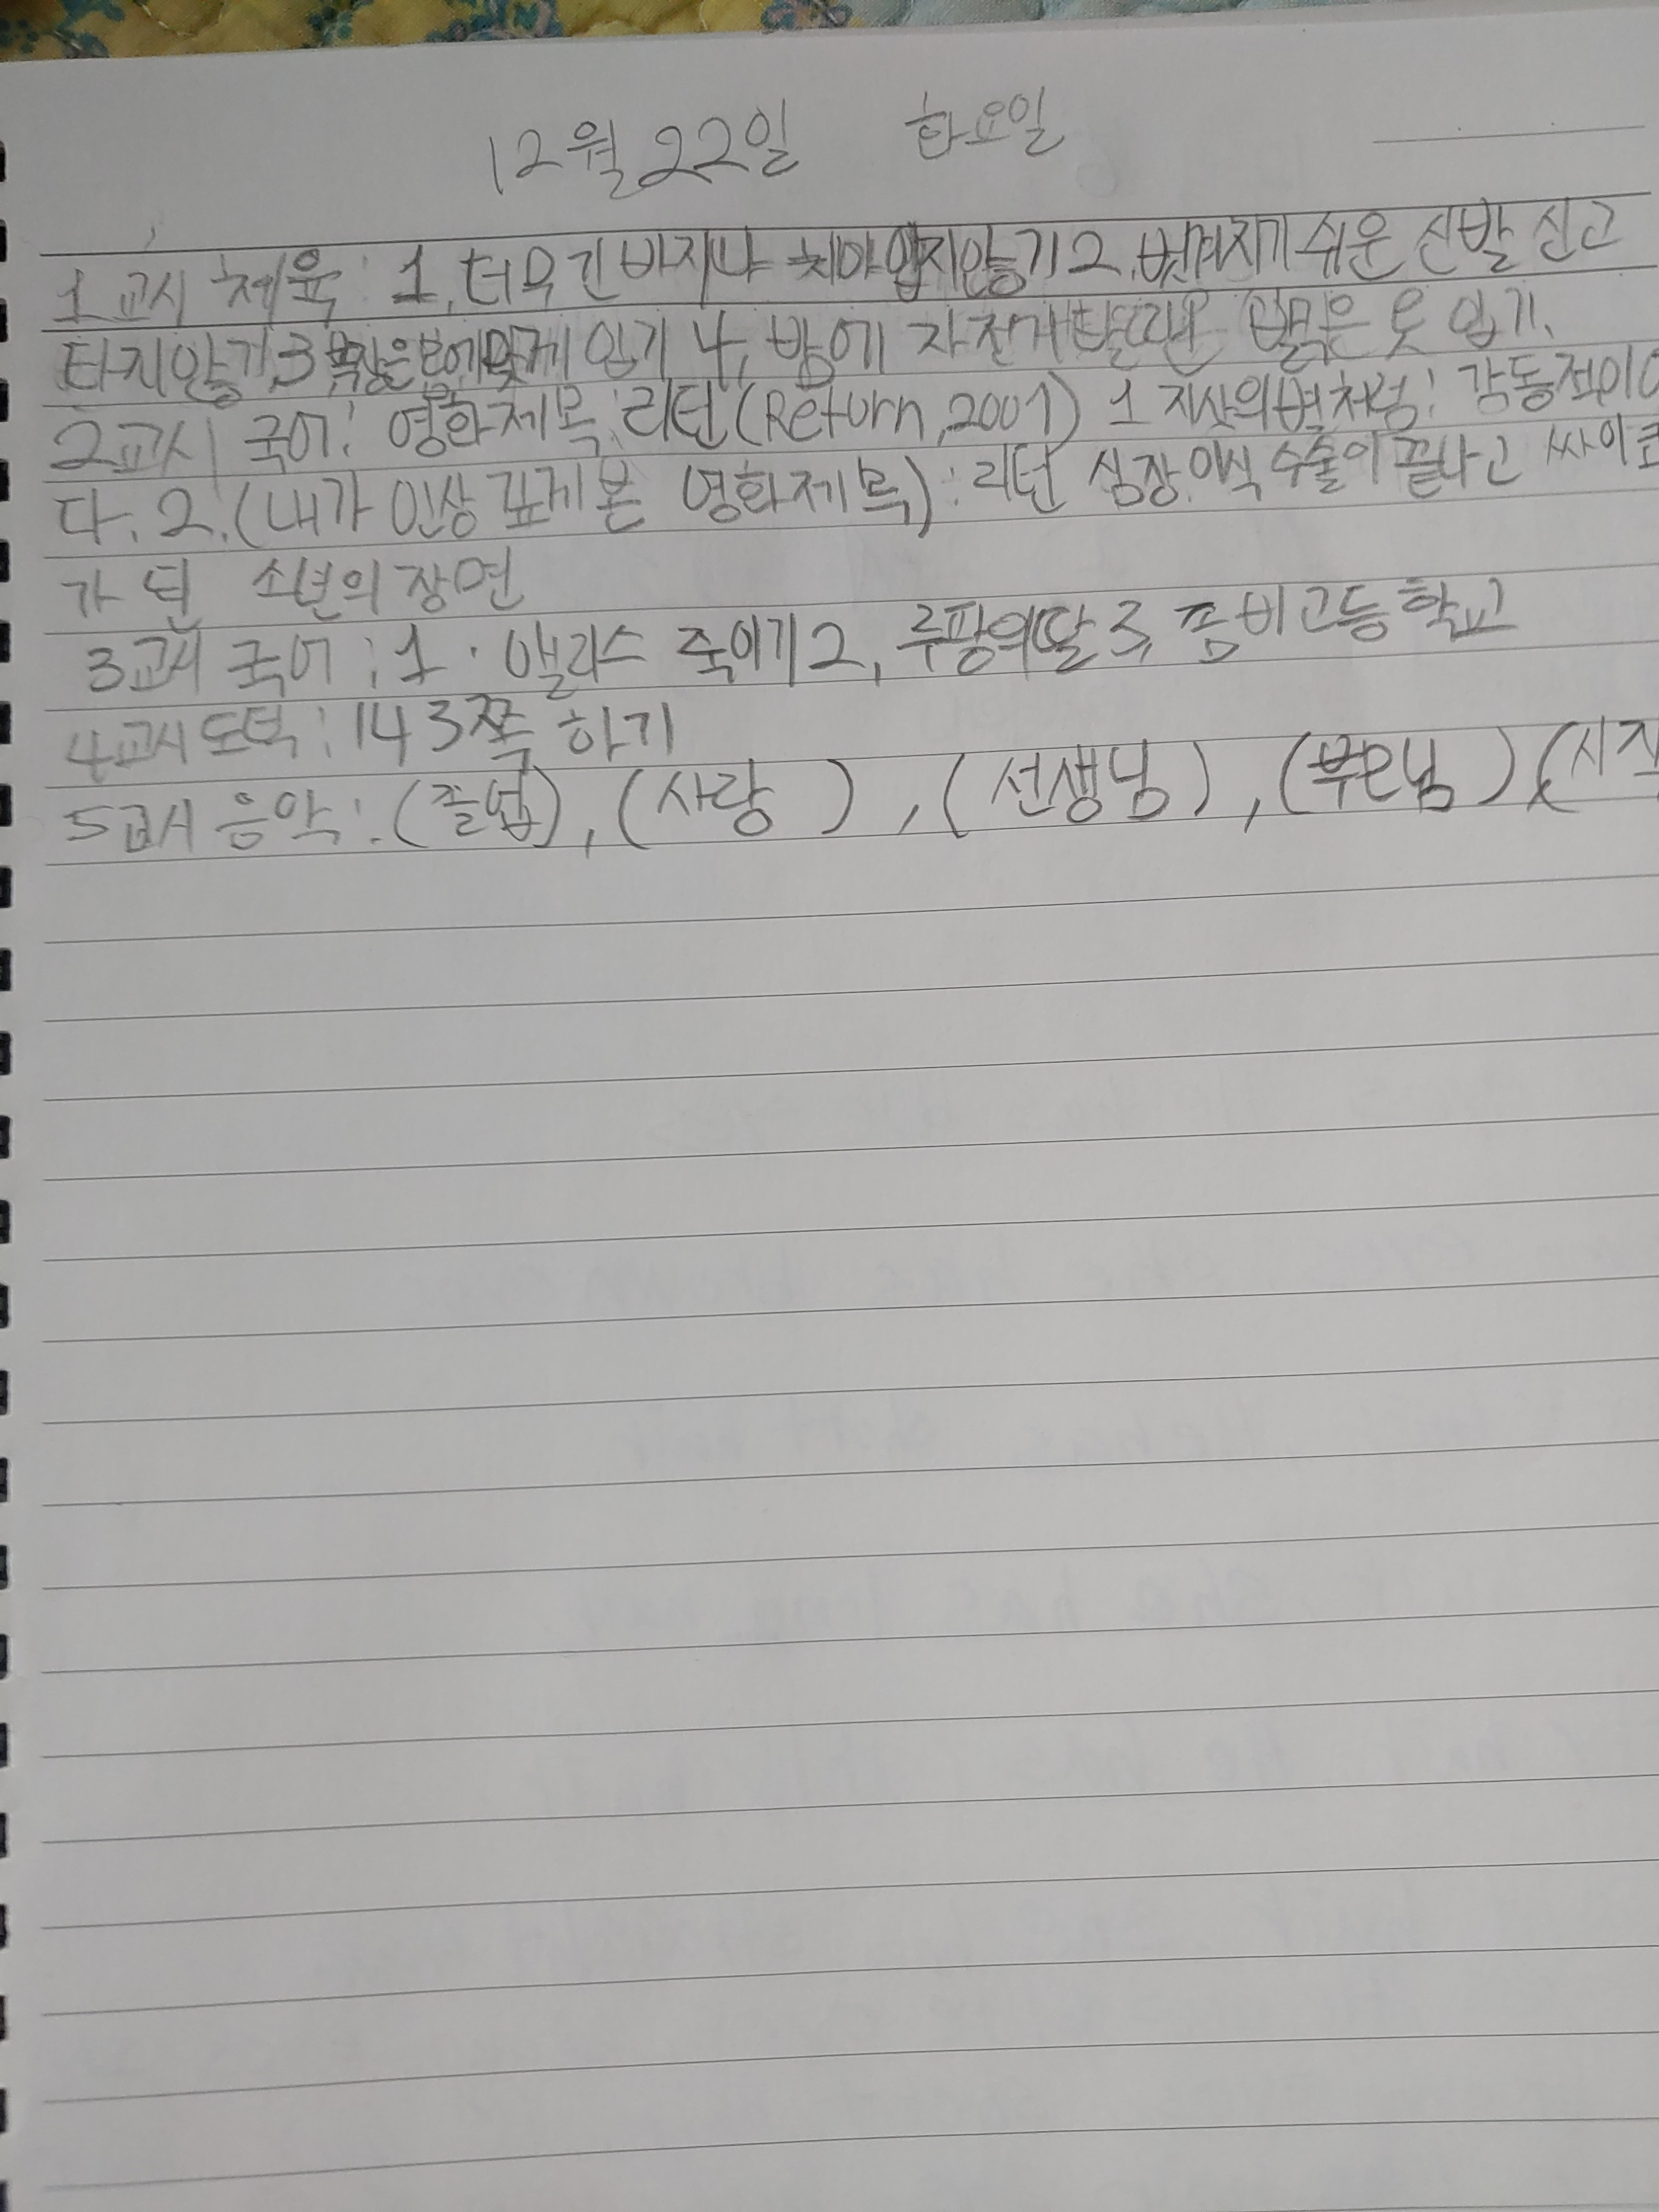 12월 22일 화요일
1교시 체육: 1. 너무 긴 바지나 치마 입지 않기 2. 벗겨지기 쉬운 신발 신고
타지 않기, 3 복장은 몸에 맞게 입기 4, 밤에 자전거 탈때는 밝은 옷 입기.
2교시 국어: 영화제목: 리턴(Return, 2001) 1 지상의 별처럼: 감동적이
다. 2. (내가 인상 깊게 본 영화제목): 리턴 심장 이식 수술이 끝나고 싸이코
가 된 소년의 장면
3교시 국어: 1. 앨리스 죽이기 2, 루팡의 딸 3, 좀비고등학교
4교시 도덕: 143쪽 하기
5교시 음악: (졸업), (사랑), (선생님), (부모님) (시작